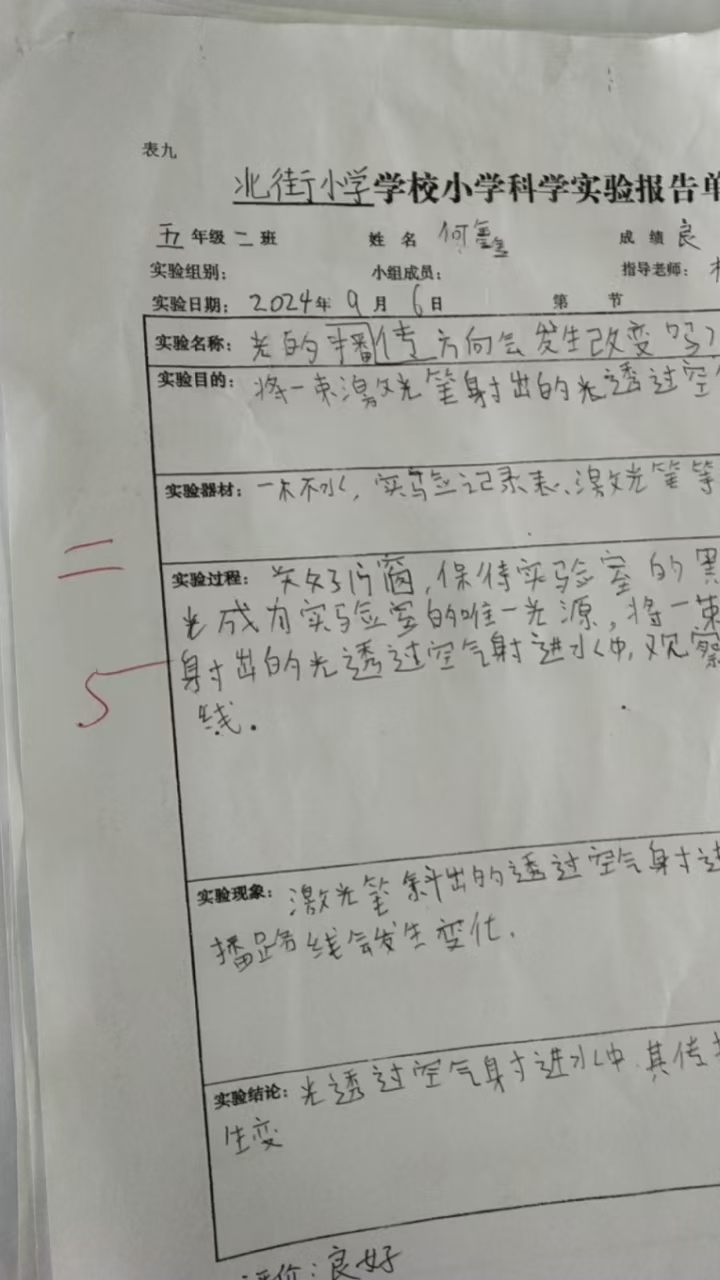 表九
北街小学学校小学科学实验报告单
五年级二班 姓名 何 成绩 良
实验组别： 小组成员： 指导老师：
实验日期：2024年9月6日 第 节
实验名称：光的播传方向会发生改变吗？
实验目的：将一束激光笔射出的光透过空
实验器材：一杯水，实验记录表、激光笔等
二
实验过程：关好门窗，保持实验室的黑
光成为实验室的唯一光源，将一束
5
射出的光透过空气射进水中，观察
线。
实验现象：激光笔斜出的透过空气射进
播路线会发生变化．
实验结论：光透过空气射进水中．其传
生变
评价：良好